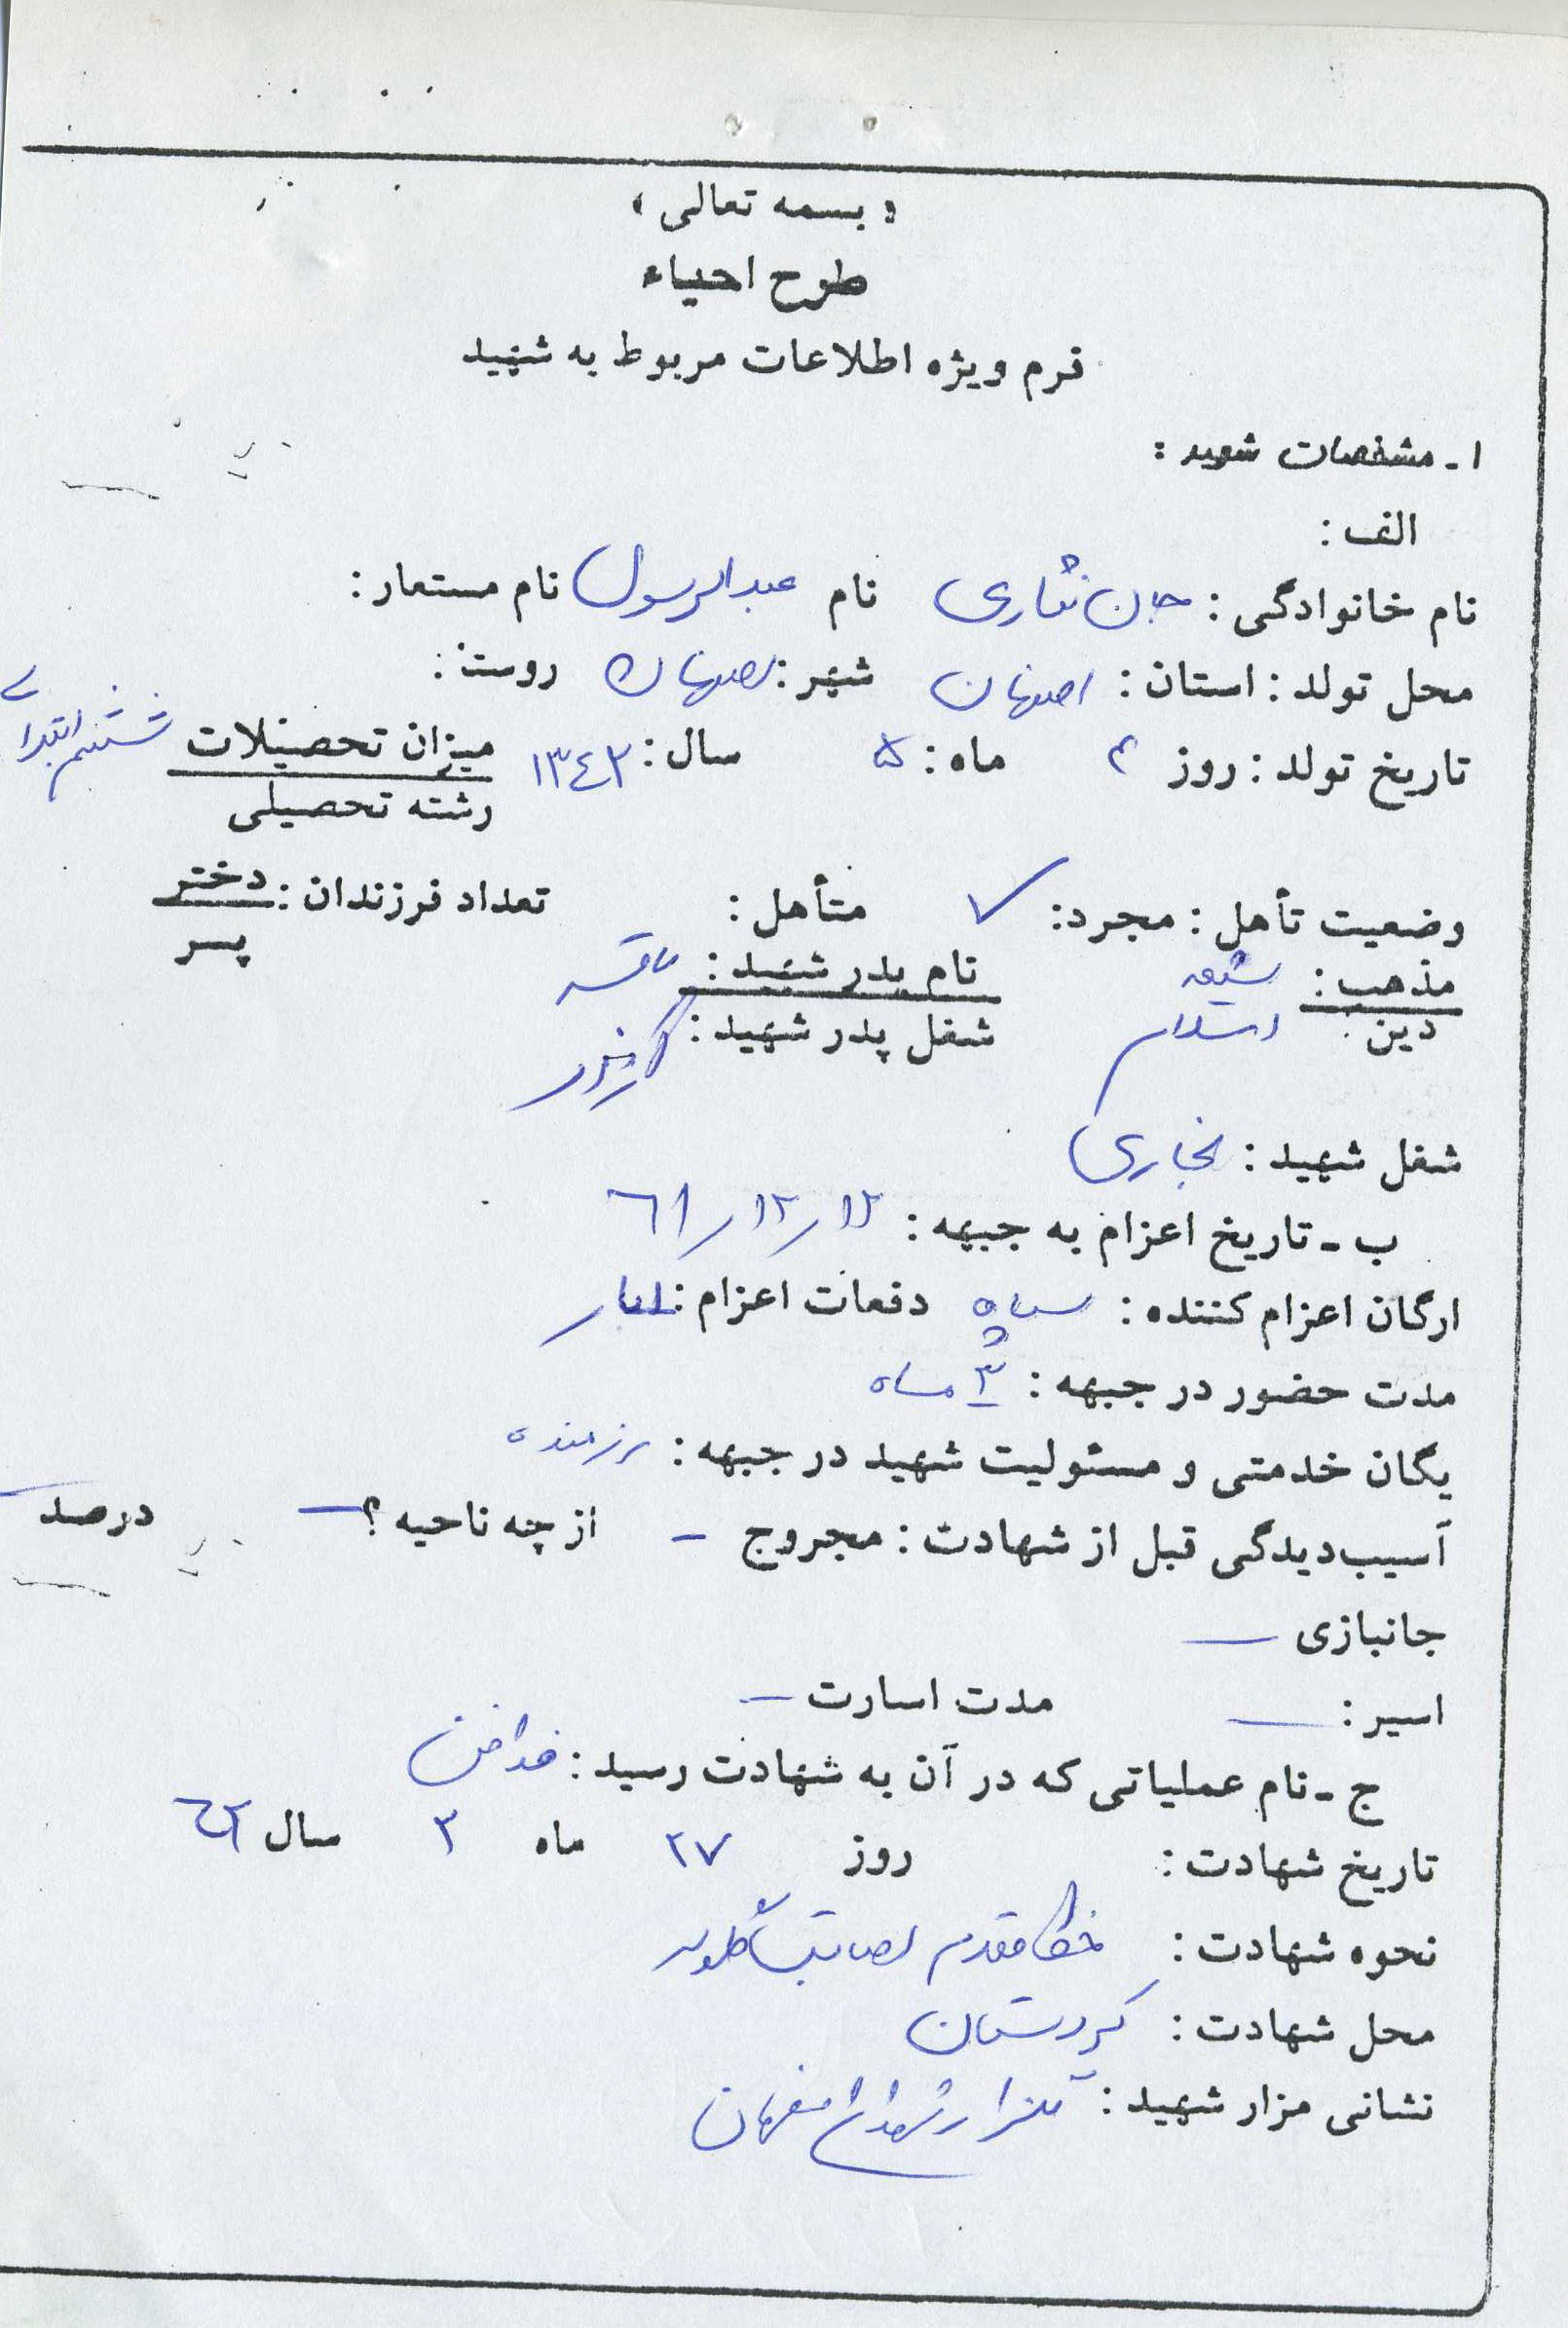 « بسمه تعالی »
طرح احیاء
فرم ویژه اطلاعات مربوط به شهید
۱ـ مشخصات شهید :
الف :
نام خانوادگی : جان نثاری نام عبدالرسول نام مستعار :
محل تولد : استان : اصفهان شهر : اصفهان روستا :
تاریخ تولد : روز ۴ ماه : ۵ سال : ۱۳۴۲ میزان تحصیلات ششم ابتدائی
رشته تحصیلی
وضعیت تأهل : مجرد : ✓ متأهل : تعداد فرزندان : دختر
پسر
مذهب : شیعه نام پدر شهید :
دین : اسلام شغل پدر شهید :
شغل شهید : نجاری
ب ـ تاریخ اعزام به جبهه : ۱۲/۱۲/۶۱
ارگان اعزام کننده : سپاه دفعات اعزام : ۱بار
مدت حضور در جبهه : ۳ ماه
یگان خدمتی و مسئولیت شهید در جبهه : رزمنده
آسیب‌دیدگی قبل از شهادت : مجروح – از چه ناحیه ؟ – درصد –
جانبازی –
اسیر : – مدت اسارت –
ج ـ نام عملیاتی که در آن به شهادت رسید :
تاریخ شهادت : روز ۲۷ ماه ۲ سال ۶۲
نحوه شهادت : خط مقدم اصابت گلوله
محل شهادت : کردستان
نشانی مزار شهید : گلزار شهدای اصفهان